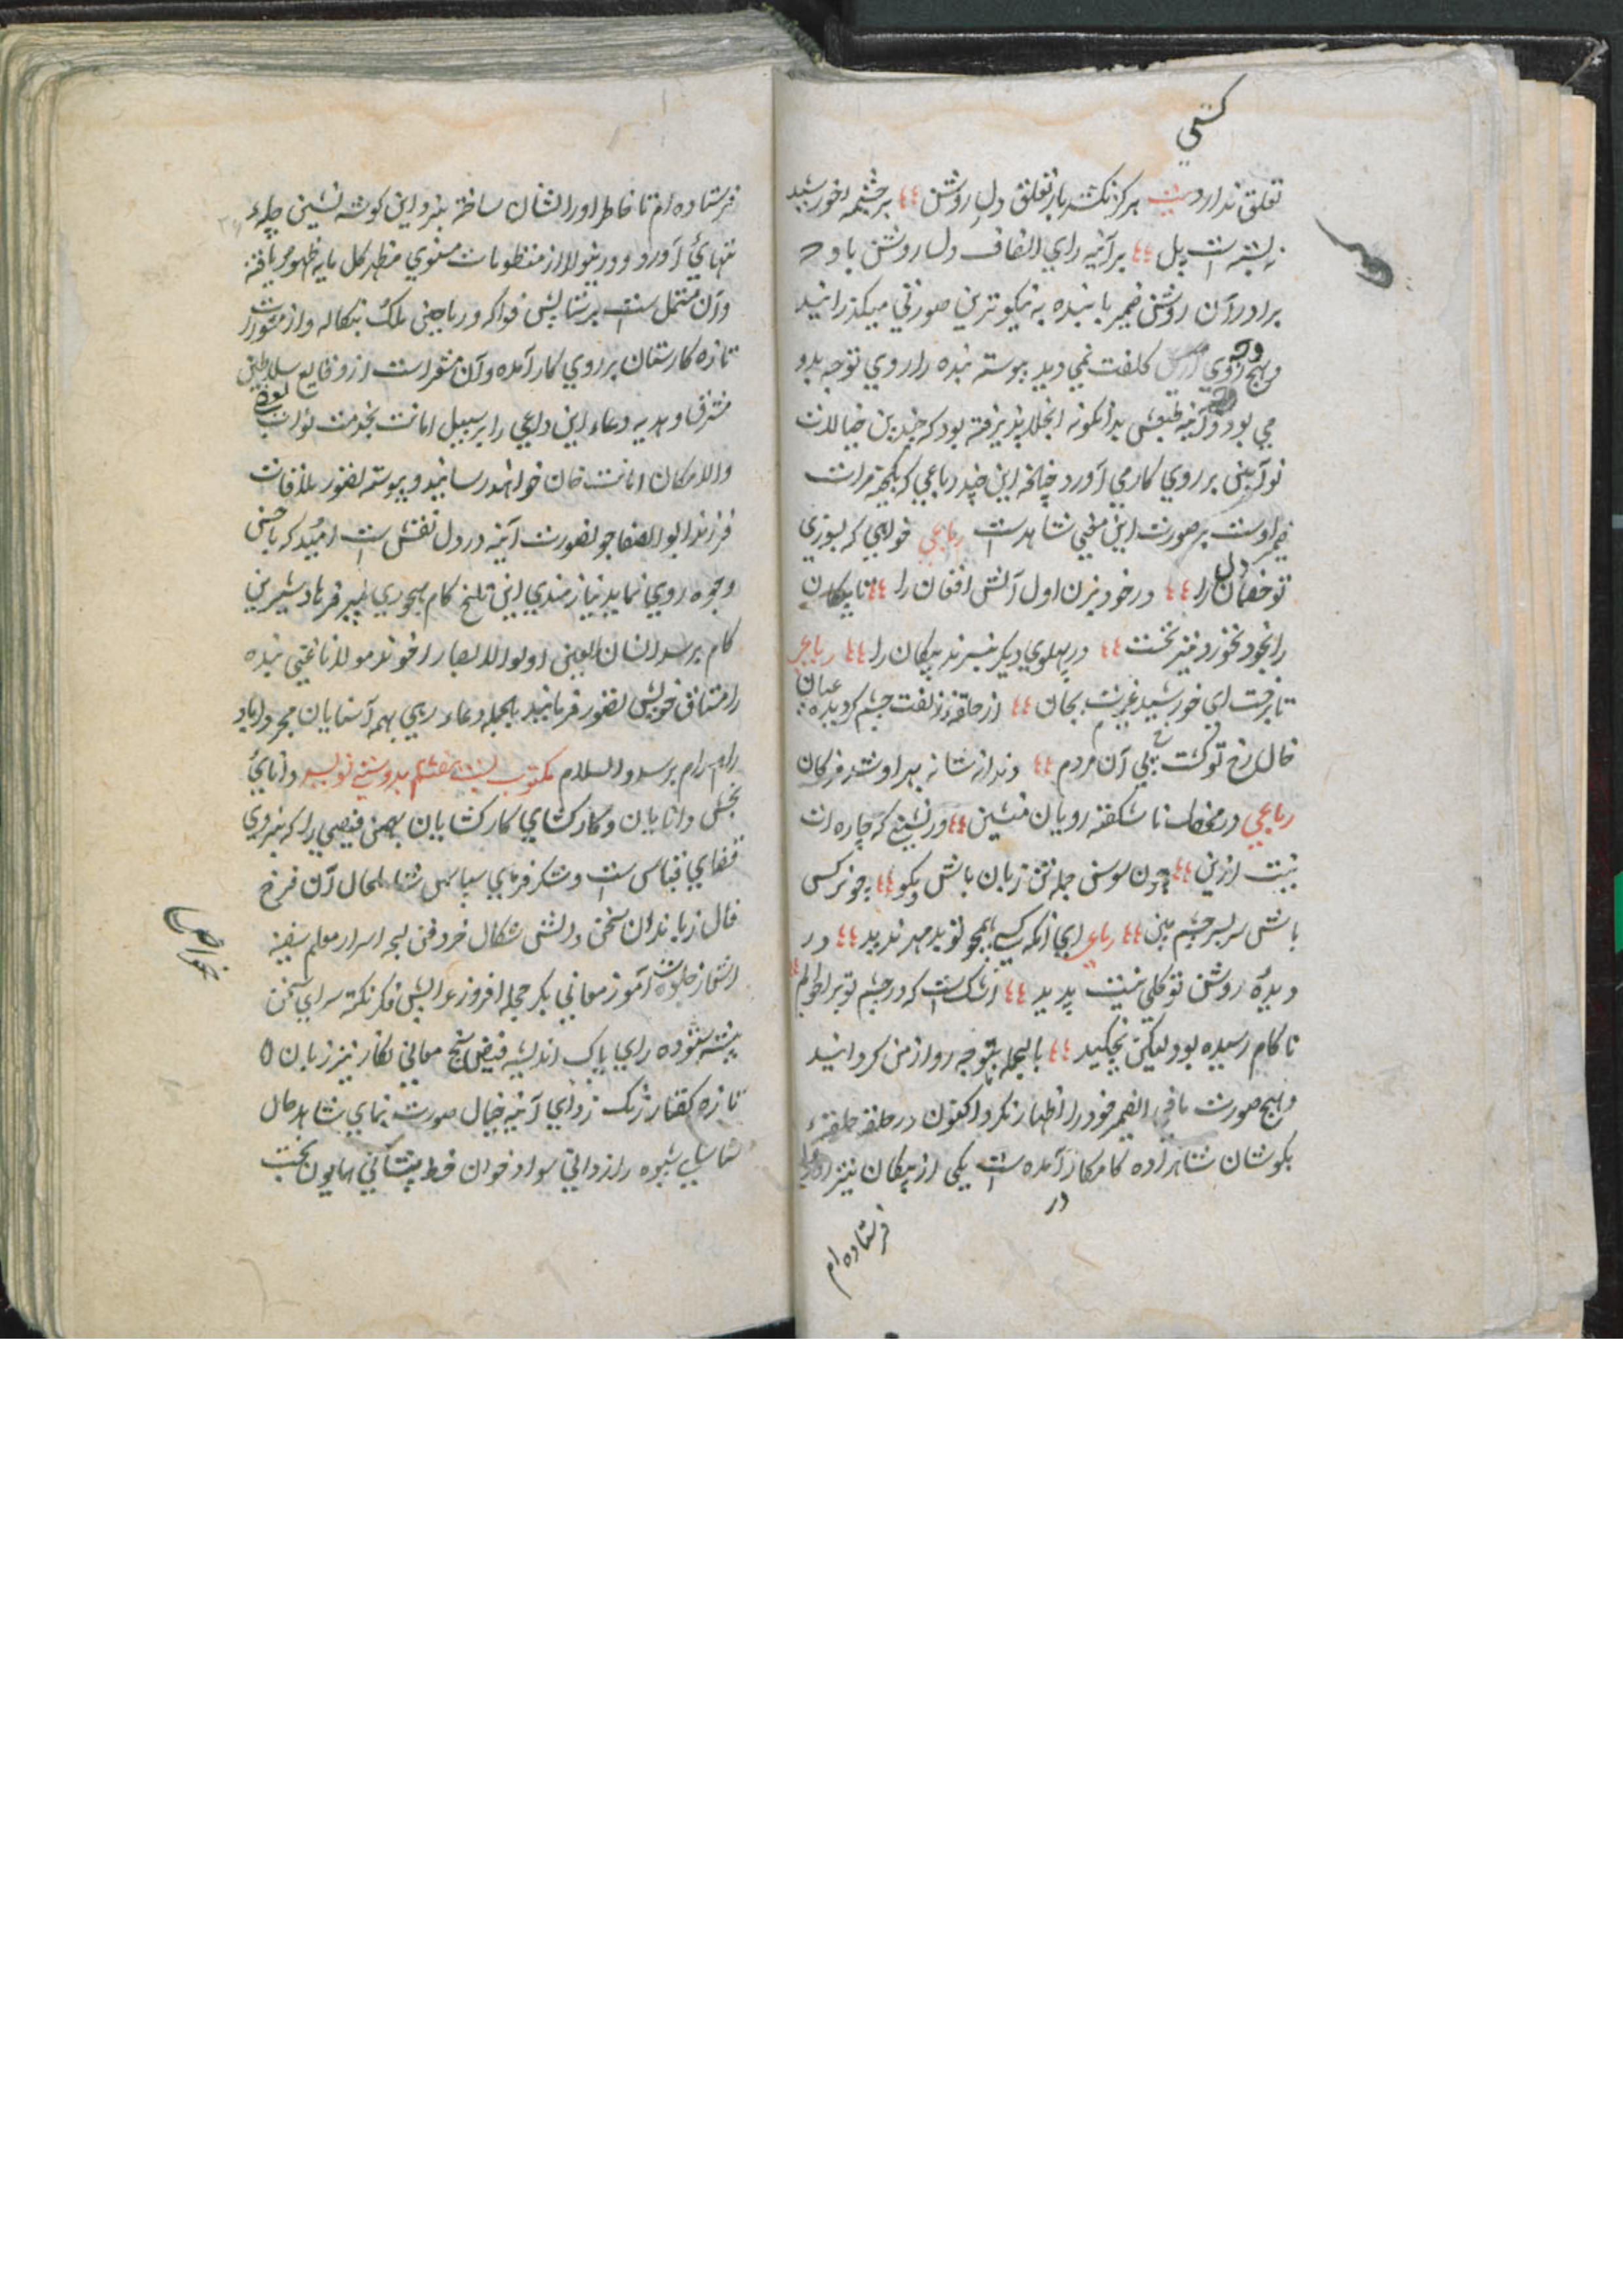 کستی
تعلق ندارد بیت هرکز نکشد بار تعلق دل روشن بر چشمه خورشید
نه بسته است پل برآینه رای انصاف دل روشن باد که
برادر آن روشن ضمیر با بنده به نیکوترین صورتی میکذرانید
و هیچ وجه روی کلفت نمی دید پیوسته بنده را روی توجه بدو
می بود و آینه طبعش بدانکونه انجلا پذیرفته بود که چندین خیالات
نوآیین بر روی کار می آورد چنانچه این چند رباعی که نتیجه مرات
ضمیر اوست بر صورت این معنی شاهدست رباعی خواهی که بسوزی
تو خصمان را در خود بزن اول آتش افغان را تا پیکان
را بخود نخورد تیر نخست در پهلوی دیکر نبرند پیکان را رباعی
تا رفت ای خورشید عذارت بجان از حلقه زلفت چشم کردیده عیان
خال رخ تو کشت پی آن مردم دندانه شانه بهر او شد مژکان
رباعی در محفل ناشکفته رویان منشین ور بنشینی که چاره ات
نیست ازین چون سوسن جمله تن زبان باش و بکو چو نرکس
باش سر بسر چشم ببین رباعی ای آنکه کسی همچو تو بد مهر ندید در
دیدهٔ روشن تو کلی نیست پدید اشک است که در چشم تو بر احوالم
تا کام رسیده بود لیکن نچکید بالجمله بتوجه رو از من کردانید
و هیچ صورت ما فی الضمیر خود را اظهار نکرد اکنون در حلقه حلقه
بکوشان شاهزاده کامکار آمده است یکی از پیکان تیز
در
فرستاده ام
فرستاده ام تا خاطر او را نشان ساخته بنزد این کوشه نشین چله
تنهائی آورد و درینولا از منظومات مثنوی مظهر کل پایه ظهور یافته
و آن مشتمل ست بر ستایش فواکه و ریاحین ملک بنکاله و از منثورات
تازه کارستان بر روی کار آمده و آن مشعر است از وقایع سلاطین
مشرق و هدیه دعاء این داعی را بر سبیل امانت بخدمت نواب
والا مکان امانت خان خواهند رسانید و پیوسته تصور ملاقات
فرزند ابو الصفا جو تصورت آینه در دل نقش ست امید که باحسن
وجوه روی نماید نیازمندی این تلخ کام مهجوری بمیر فرهاد شیرین
کام برسد انسان العین اولو الابصار اخوند مولانا غنی بنده
را مشتاق خویش تصور فرمایند بالجمله دعاء رسمی بهمه آشنایان مجرد اباد
رام رام برسد والسلام مکتوب بیست هفتم بدوستی نویسد دانایی
بخش دانایان و کارکشای کارکشایان بهمن فیضی را که نیروی
قضای قیاس ست و شکر فرمای سپاس شامل حال آن فرخ
فال زباندان سخن دانش سکال خرد فن لجه اسرار معلم سفینه
اشعار خلوت آموز معانی بکر حجله افروز عرایس فکر نکته سرای سخن
پیشه ستوده رای پاک اندیشه فیض سنج معانی نکار تیز زبان
تازه کفتار زنک زدای آینه خیال صورت نمای شاهد حال
شناسای شیوه رازدانی سواد خوان خط پیشانی همایون بخت
خواص